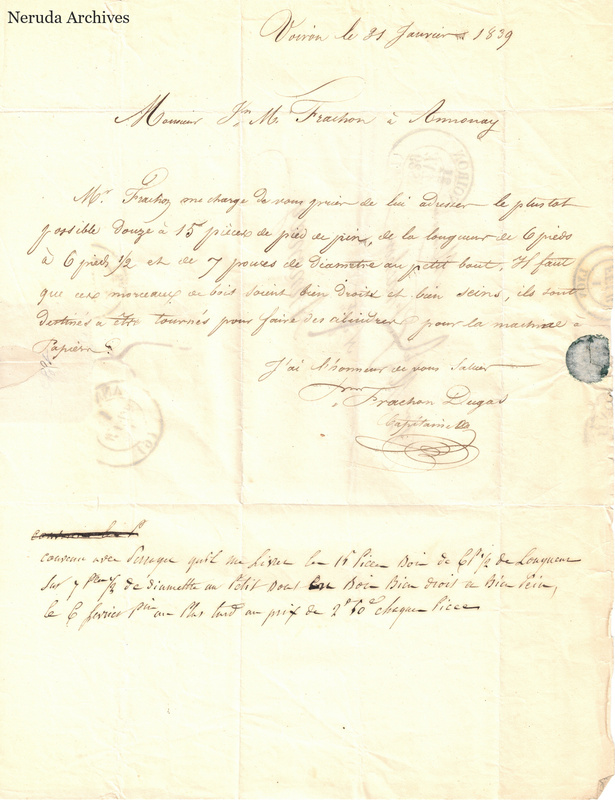 Neruda Archives
Voiron le 31 Janvier 1839
Monsieur Jn. M. Frachon à Annonay
Mr. Frachon me charge de vous prier de lui adresser le plustot
possible douze à 15 pièces de pied de pin, de la longueur de 6 pieds
à 6 pieds 1/2 et de 7 pouces de diametre au petit bout. Il faut
que ces morceaux de bois soient bien droits et bien seins, ils sont
destinés à être tournés pour faire des cilindres pour la machine à
Papier.
J'ai l'honneur de vous saluer
Frachon Dugas
Capitaine
convenu avec qu'il me Livre les 15 Pièces Bois de 6 1/2 de Longueur
sur 7 1/2 de diamettre au Petit Bout Bois Bien droit & Bien sein,
le 6 fevrier au Plus tard au prix de chaque Pièce